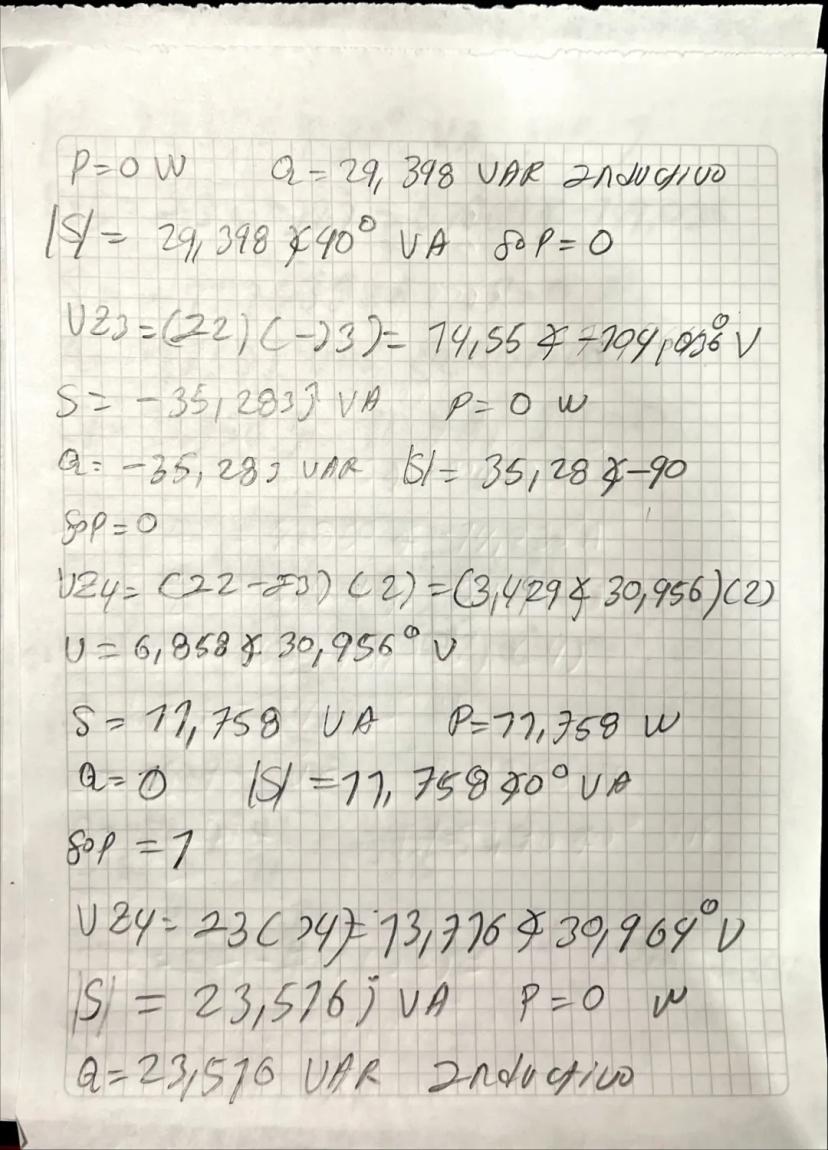 P=0 W Q=29,398 VAR Inductivo
|S|= 29,398 ∡90° VA fop=0
VZ3=(I2)(-J3)= 14,55 ∡-104,036° V
S= -35,283j VA P= 0 W
Q= -35,283 VAR |S|= 35,28 ∡-90
fop=0
VZ4= (I2-I3)(2)=(3,429∡ 30,956)(2)
V= 6,858∡ 30,956° V
S= 11,758 VA P=11,758 W
Q=0 |S|=11,758∡0° VA
fop =1
VZ4= I3(J4)= 13,716∡ 30,964° V
|S| = 23,516j VA P=0 W
Q=23,516 VAR Inductivo